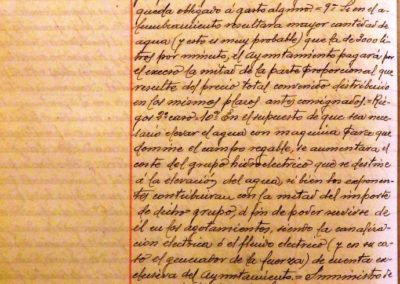 queda obligado á gasto alguno = 9º Si en el a-
lumbramiento resultara mayor cantidad de
agua (y esto es muy probable) que la de 3000 li-
tros por minuto, el Ayuntamiento pagará por
el exceso la mitad de la parte proporcional que
resulte del precio total convenido distribuido
en los mismos plazos antes consignados = Rie-
gos 2º caso 10º En el supuesto de que sea nece-
sario elevar el agua con maquina para que
domine el campo regable, se aumentará el
coste del grupo hidroelectrico que se destine
á la elevación del agua, si bien los exponen-
tes contribuirán con la mitad del importe
de dicho grupo, á fin de poder servirse de
él en los agotamientos, siendo la canaliza-
ción electrica ó el fluido electrico (y en su ca-
so el generador de la fuerza) de cuenta ex-
clusiva del Ayuntamiento. = Suministro de